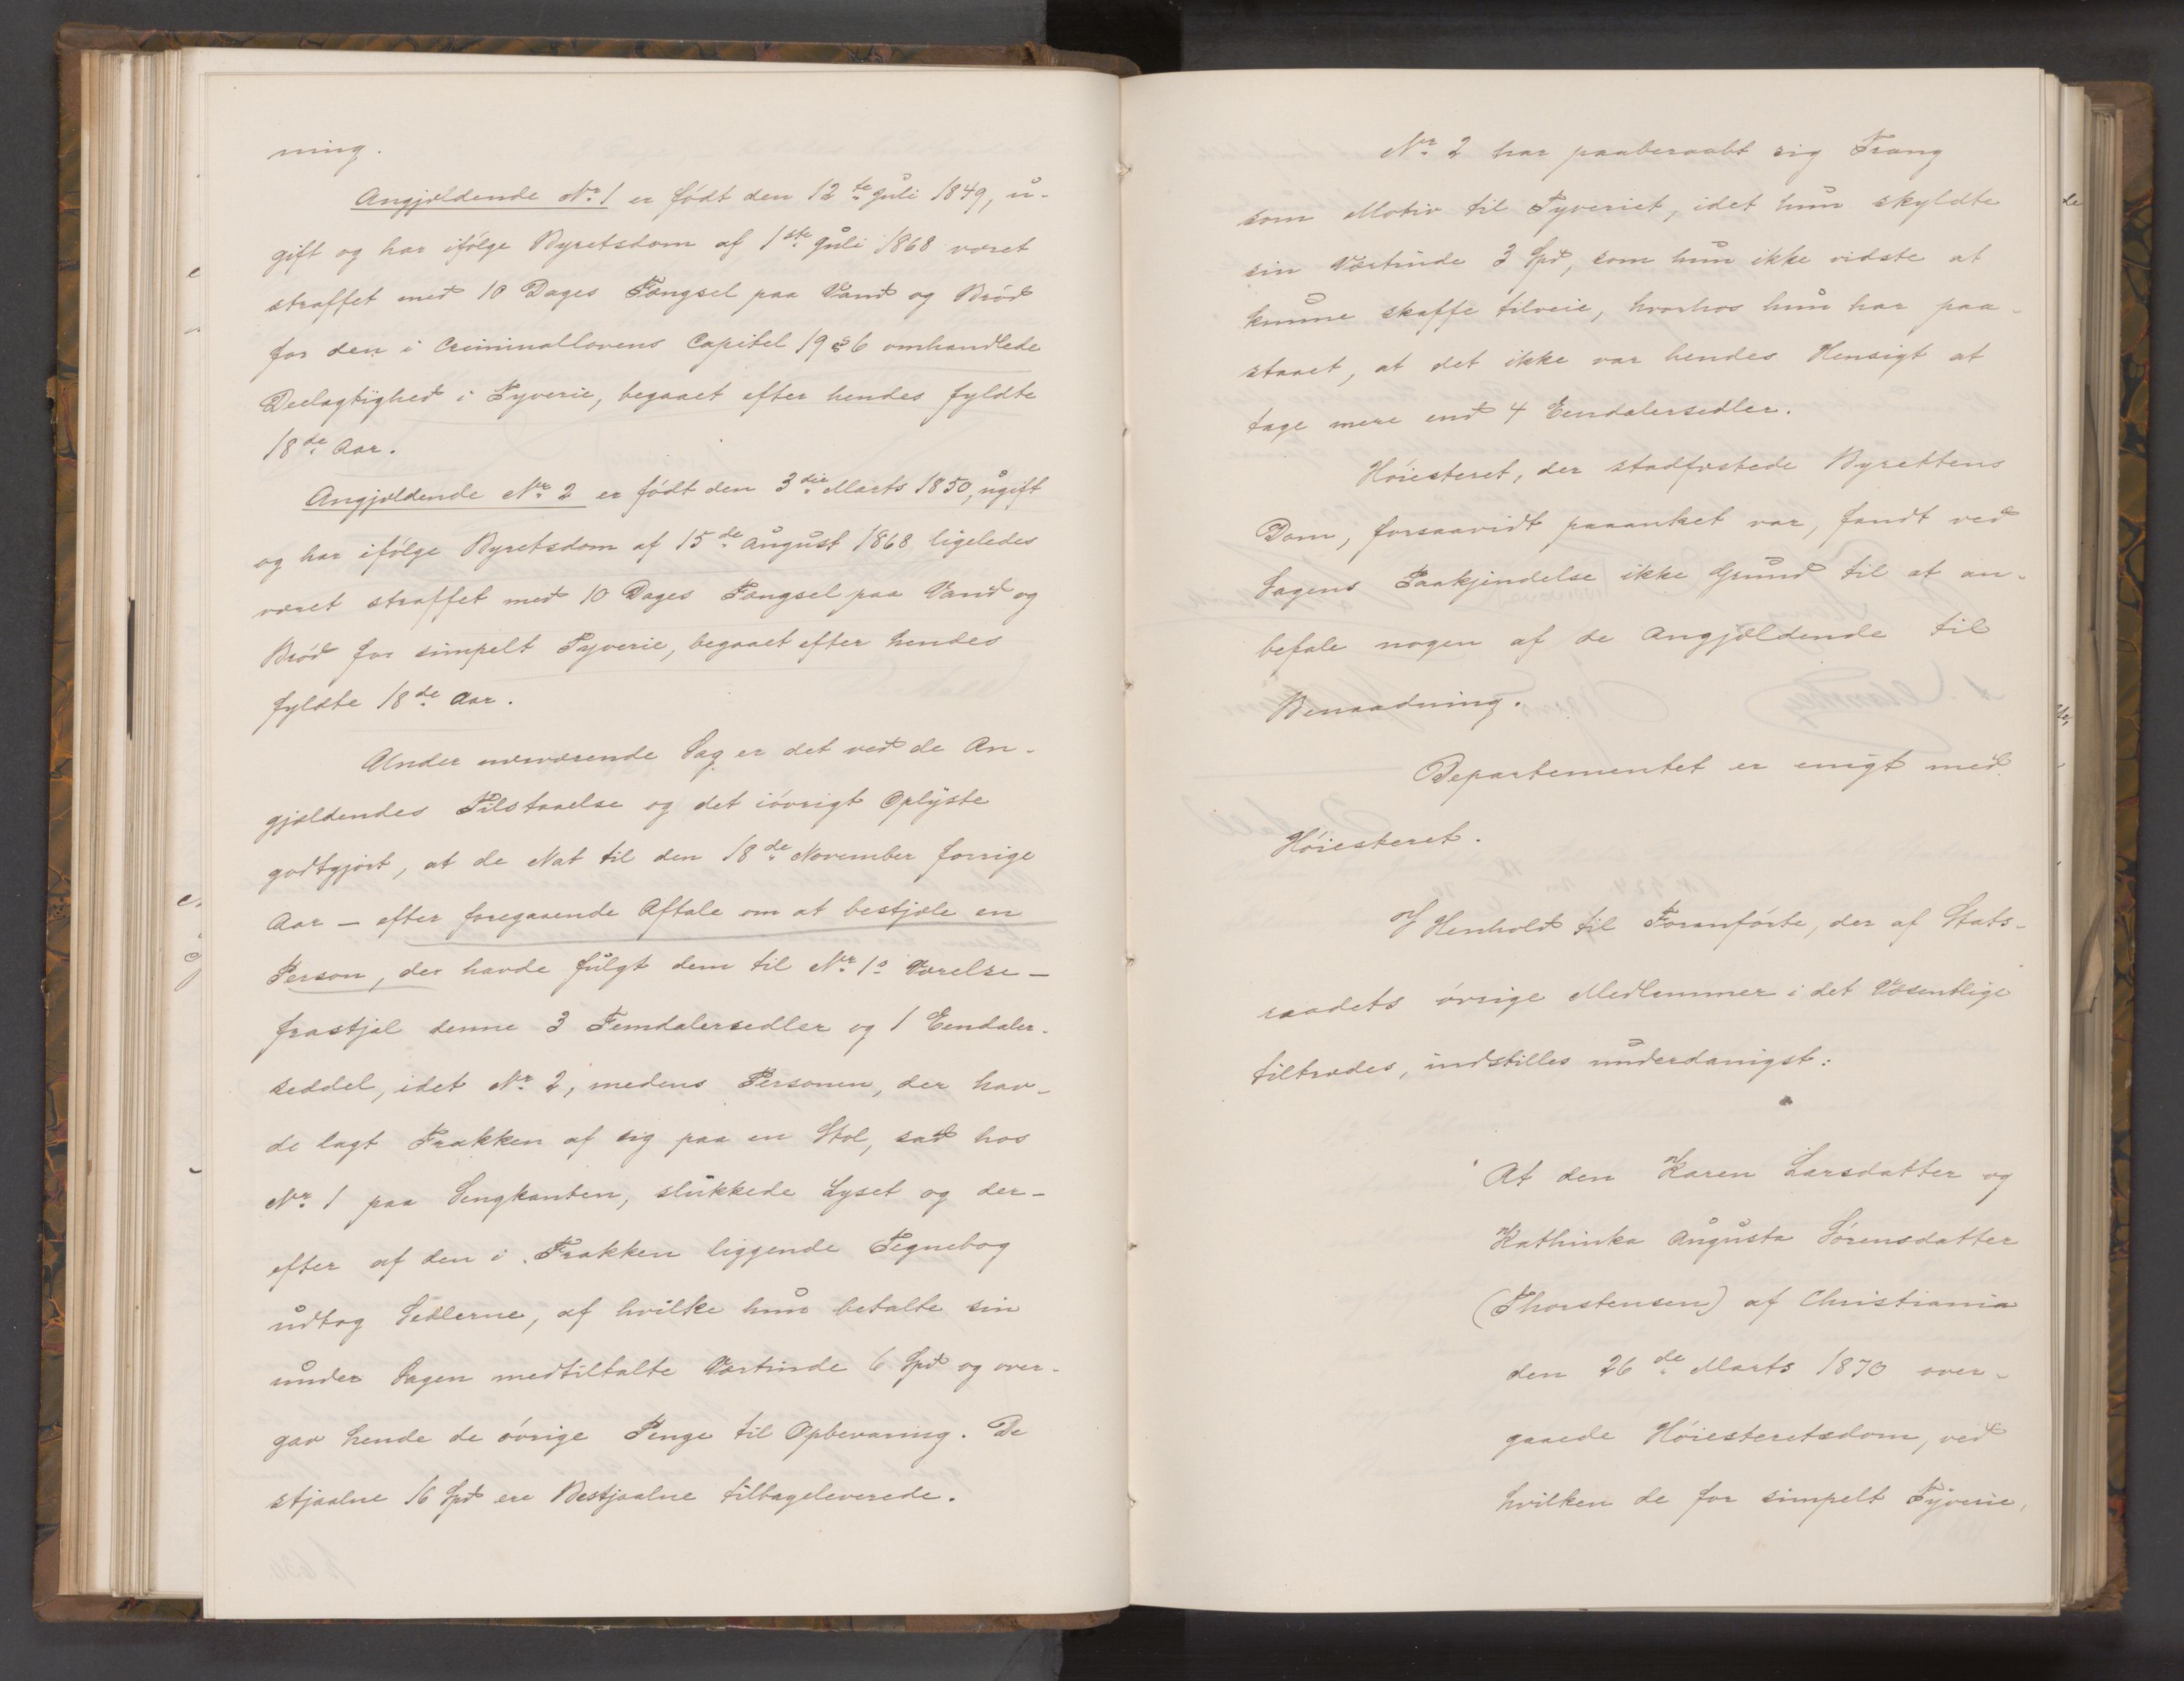 ning.
Angjældende Nr. 1 er født den 12te Juli 1849, u-
gift og har ifølge Byretsdom af 1ste Juli 1868 været
straffet med 10 Dages Fængsel paa Vand og Brød
for den i Criminallovens Capitel 19 § 6 omhandlede
Deelagtighed i Tyverie, begaaet efter hendes fyldte
18de Aar.
Angjældende Nr. 2 er født den 3die Marts 1850, ugift
og har ifølge Byretsdom af 15de August 1868 ligeledes
været straffet med 10 Dages Fængsel paa Vand og
Brød for simpelt Tyverie, begaaet efter hendes
fyldte 18de Aar.
Under nærværende Sag er det ved de An-
gjældendes Tilstaaelse og det iøvrigt Oplyste
godtgjort, at de Nat til den 18de November forrige
Aar — efter foregaaende Aftale om at bestjæle en
Person, der havde fulgt dem til Nr. 1s Værelse —
frastjal denne 3 Femdalersedler og 1 Eendaler-
seddel, idet Nr. 2, medens Personen, der hav-
de lagt Frakken af sig paa en Stol, sad hos
Nr. 1 paa Sengkanten, slukkede Lyset og der-
efter af den i Frakken liggende Tegnebog
udtog Sedlerne, af hvilke hun betalte sin
under Sagen medtiltalte Værtinde 6 Spd og over-
gav hende de øvrige Penge til Opbevaring. De
stjaalne 16 Spd ere Bestjaalne tilbageleverede.
Nr. 2 har paaberaabt sig Trang
som Motiv til Tyveriet, idet hun skyldte
sin Værtinde 3 Spd, som hun ikke vidste at
kunne skaffe tilveie, hvorhos hun har paa-
staaet, at det ikke var hendes Hensigt at
tage mere end 4 Eendalersedler.
Høiesteret, der stadfæstede Byrettens
Dom, forsaavidt paaanket var, fandt ved
Sagens Paakjendelse ikke Grund til at an-
befale nogen af de Angjældende til
Benaadning.
Departementet er enigt med
Høiesteret.
I Henhold til Foranførte, der af Stats-
raadets øvrige Medlemmer i det Væsentlige
tiltrædes, indstilles underdanigst:
At den Karen Larsdatter og
Kathinka Augusta Sørensdatter
(Thorstensen) af Christiania
den 26de Marts 1870 over-
gaaede Høiesteretsdom, ved
hvilken de for simpelt Tyverie,